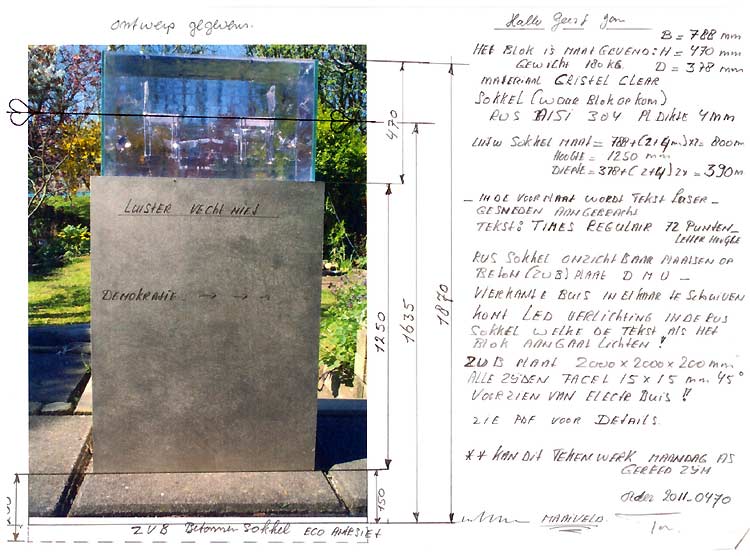 ontwerp gegevens.
Hallo Geert Jan
B = 788 mm
HET BLOK IS MAATGEVEND: H = 470 mm
GEWICHT 180 KG. D = 378 mm
MATERIAAL CRISTEL CLEAR
SOKKEL (WAAR BLOK OP KOMT)
RVS AISI 304 PL DIKTE 4 mm
UITW SOKKEL MAAT = 788 + (2+4) x 2 = 800 m
HOOGTE = 1250 mm
DIEPTE = 378 + (2+4) 2x = 390 m
- IN DE VOORPLAAT WORDT TEKST LASER -
GESNEDEN AANGEBRACHT
TEKST: TIMES REGULAIR 72 PUNTEN -
LETTER HOOGTE
RVS SOKKEL ONZICHTBAAR PLAATSEN OP
BETON (ZVB) PLAAT D M U -
VIERKANTE BUIS IN ELKAAR TE SCHUIVEN
KOMT LED VERLICHTING IN DE RVS
SOKKEL WELKE DE TEKST ALS HET
BLOK AAN GAAT LICHTEN !
ZVB PLAAT 2000 x 2000 x 200 mm
ALLE ZIJDEN FACET 15 x 15 mm 45°
VOORZIEN VAN ELECTR BUIS !!
ZIE PDF VOOR DETAILS.
** KAN DIT TEKENWERK MAANDAG AS
GEREED ZIJN
order 2011-0470
MAAIVELD
LUISTER VECHT NIET
DEMOKRATIE → → →
470
1250
1635
1870
150
ZVB Betonnen Sokkel ECO